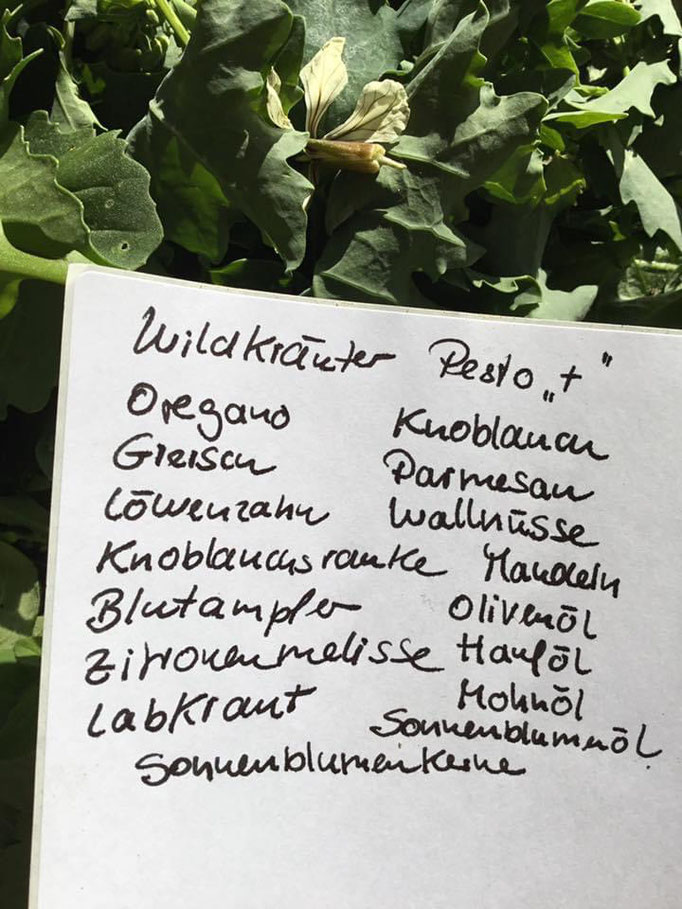 Wildkräuter Pesto „+"
Oregano Knoblauch
Giersch Parmesan
Löwenzahn Wallnüsse
Knoblauchsranke Mandeln
Blutampfer Olivenöl
Zitronenmelisse Hanföl
Labkraut Mohnöl
Sonnenblumenöl
Sonnenblumenkerne